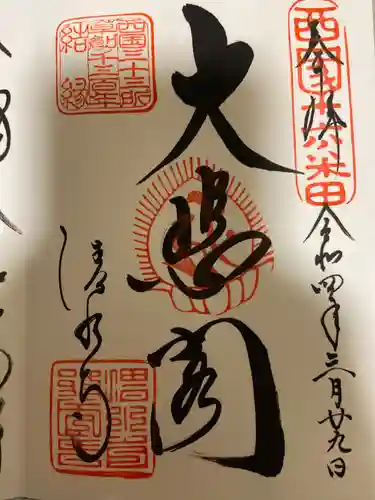 西国第十六番
奉拝
令和四年三月廿九日
大悲閣
西国三十三所
草創千三百年
結縁
清水寺